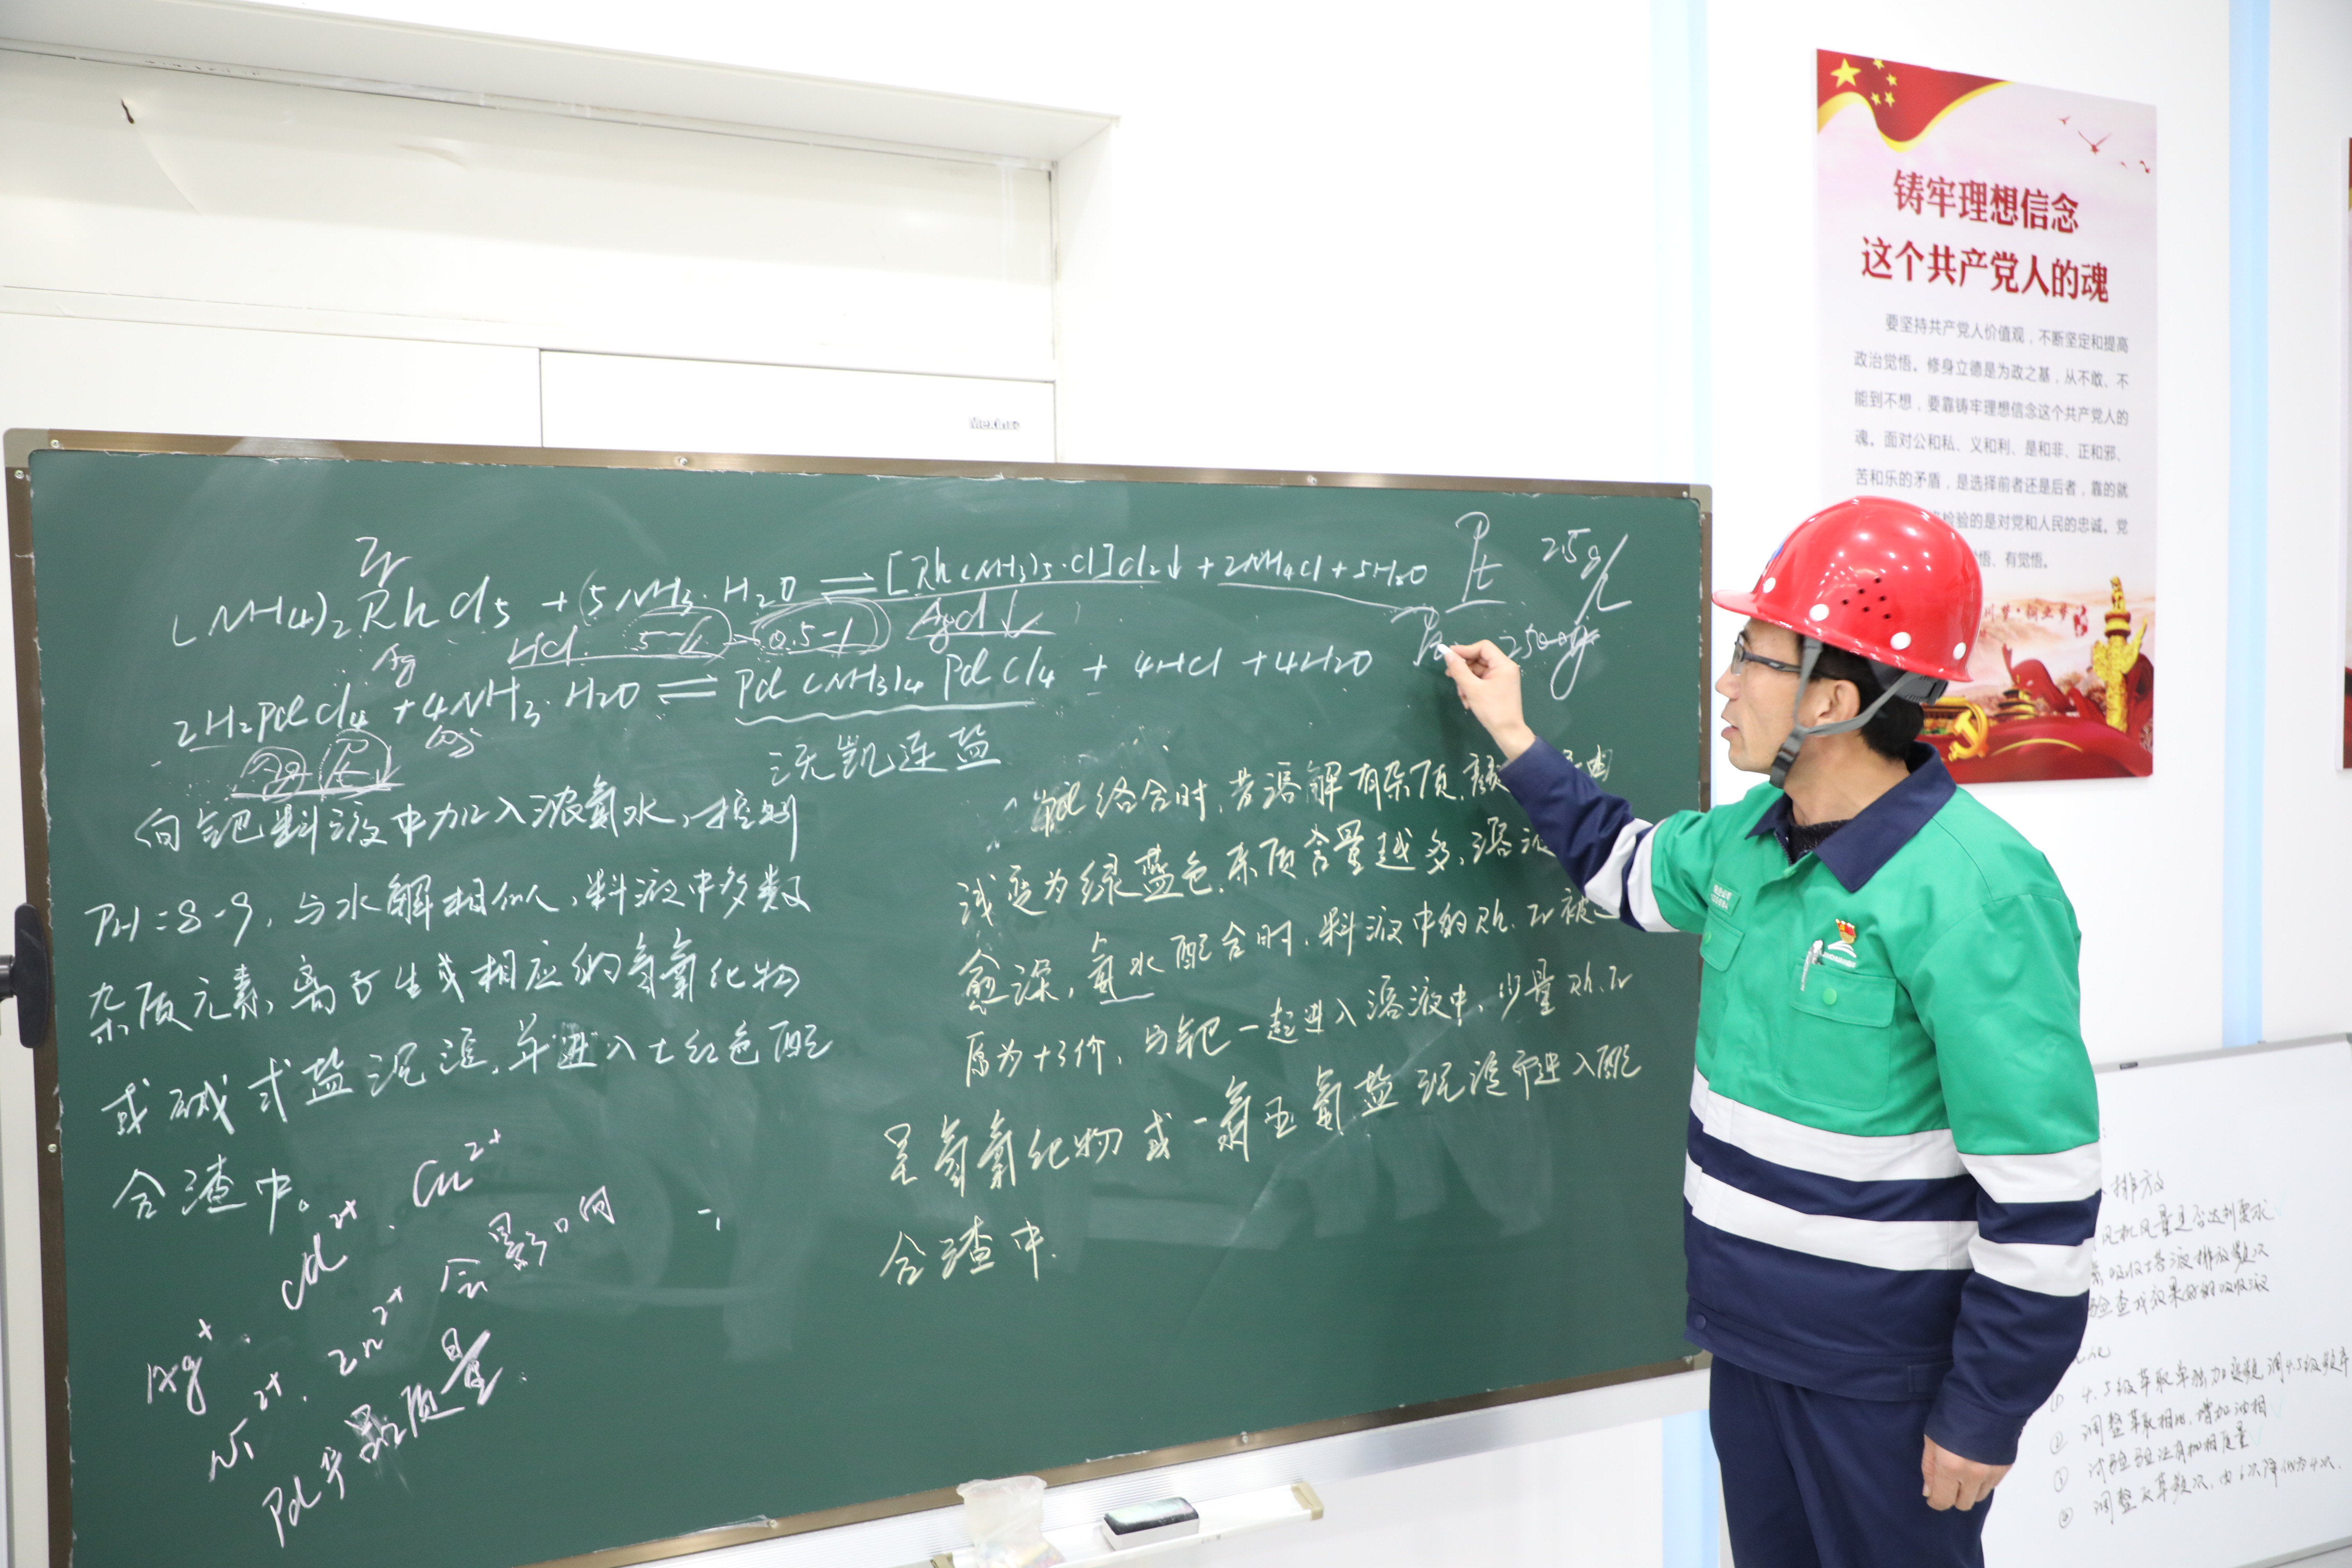 Ir
(NH4)2RhCl5 + (5NH3·H2O ⇌ [Rh(NH3)5·Cl]Cl2↓ + 2NH4Cl + 5H2O
Pt 25g/L
Ag HCl 0.5=1 AgCl↓
2H2PdCl4 + 4NH3·H2O ⇌ Pd(NH3)4PdCl4 + 4HCl + 4H2O
沉氯亚盐
向钯料液中加入浓氨水,控制
PH=8-9,与水解相似,料液中多数
杂质元素,离子生成相应的氢氧化物
或碱式盐沉淀,并进入土红色配
合渣中。
Ag+. Cd2+. Cu2+
Ni2+. Zn2+会影响
Pd产品质量.
络合时,若溶解有杂质,颜
浅变为绿蓝色.杂质含量越多,溶
愈深,氨水配合时,料液中的Rh.Ir被
原为+3价,与钯一起进入溶液中,少量Rh.Ir
呈氢氧化物或一氯五氨盐沉淀而进入配
合渣中.
铸牢理想信念
这个共产党人的魂
要坚持共产党人价值观,不断坚定和提高
政治觉悟。修身立德是为政之基,从不敢、不
能到不想,要靠铸牢理想信念这个共产党人的
魂。面对公和私、义和利、是和非、正和邪、
苦和乐的矛盾,是选择前者还是后者,靠的就
检验的是对党和人民的忠诚。党
悟、有觉悟。
排放
风机风量是否达到要求
吸收塔液排放数次
检查成效果好的吸收液
① 4.5级萃取单独加 调4.5级
② 调整萃取相比,增加油相
③ 试验 有机相质量
④ 调整反萃级次,由6次降低为4次.